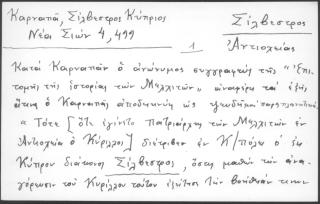 Καρναπᾶ, Σίλβεστρος Κύπριος
Νέα Σιών 4, 499
Σίλβεστρος
Ἀντιοχείας
1
Κατά Καρναπᾶν ὁ ἀνώνυμος συγγραφεύς τῆς "Ἐπι-
τομῆς τῆς ἱστορίας τῶν Μελχιτῶν" ἀναφέρει τά ἑξῆς
ἅτινα ὁ Καρναπᾶς ἀποδοκιμάζει ὡς
"Τότε [ὅτε ἐγένετο Πατριάρχης τῶν Μελχιτῶν ἐν
Ἀντιοχείᾳ ὁ Κύριλλος] διέτριβεν ἐν Κ/πόλει ὁ ἐκ
Κύπρου διάκονος Σίλβεστρος, ὅστις μαθών τήν ἀνα-
γόρευσιν τοῦ Κυρίλλου τούτου ἐζήτησε τήν βοήθειαν